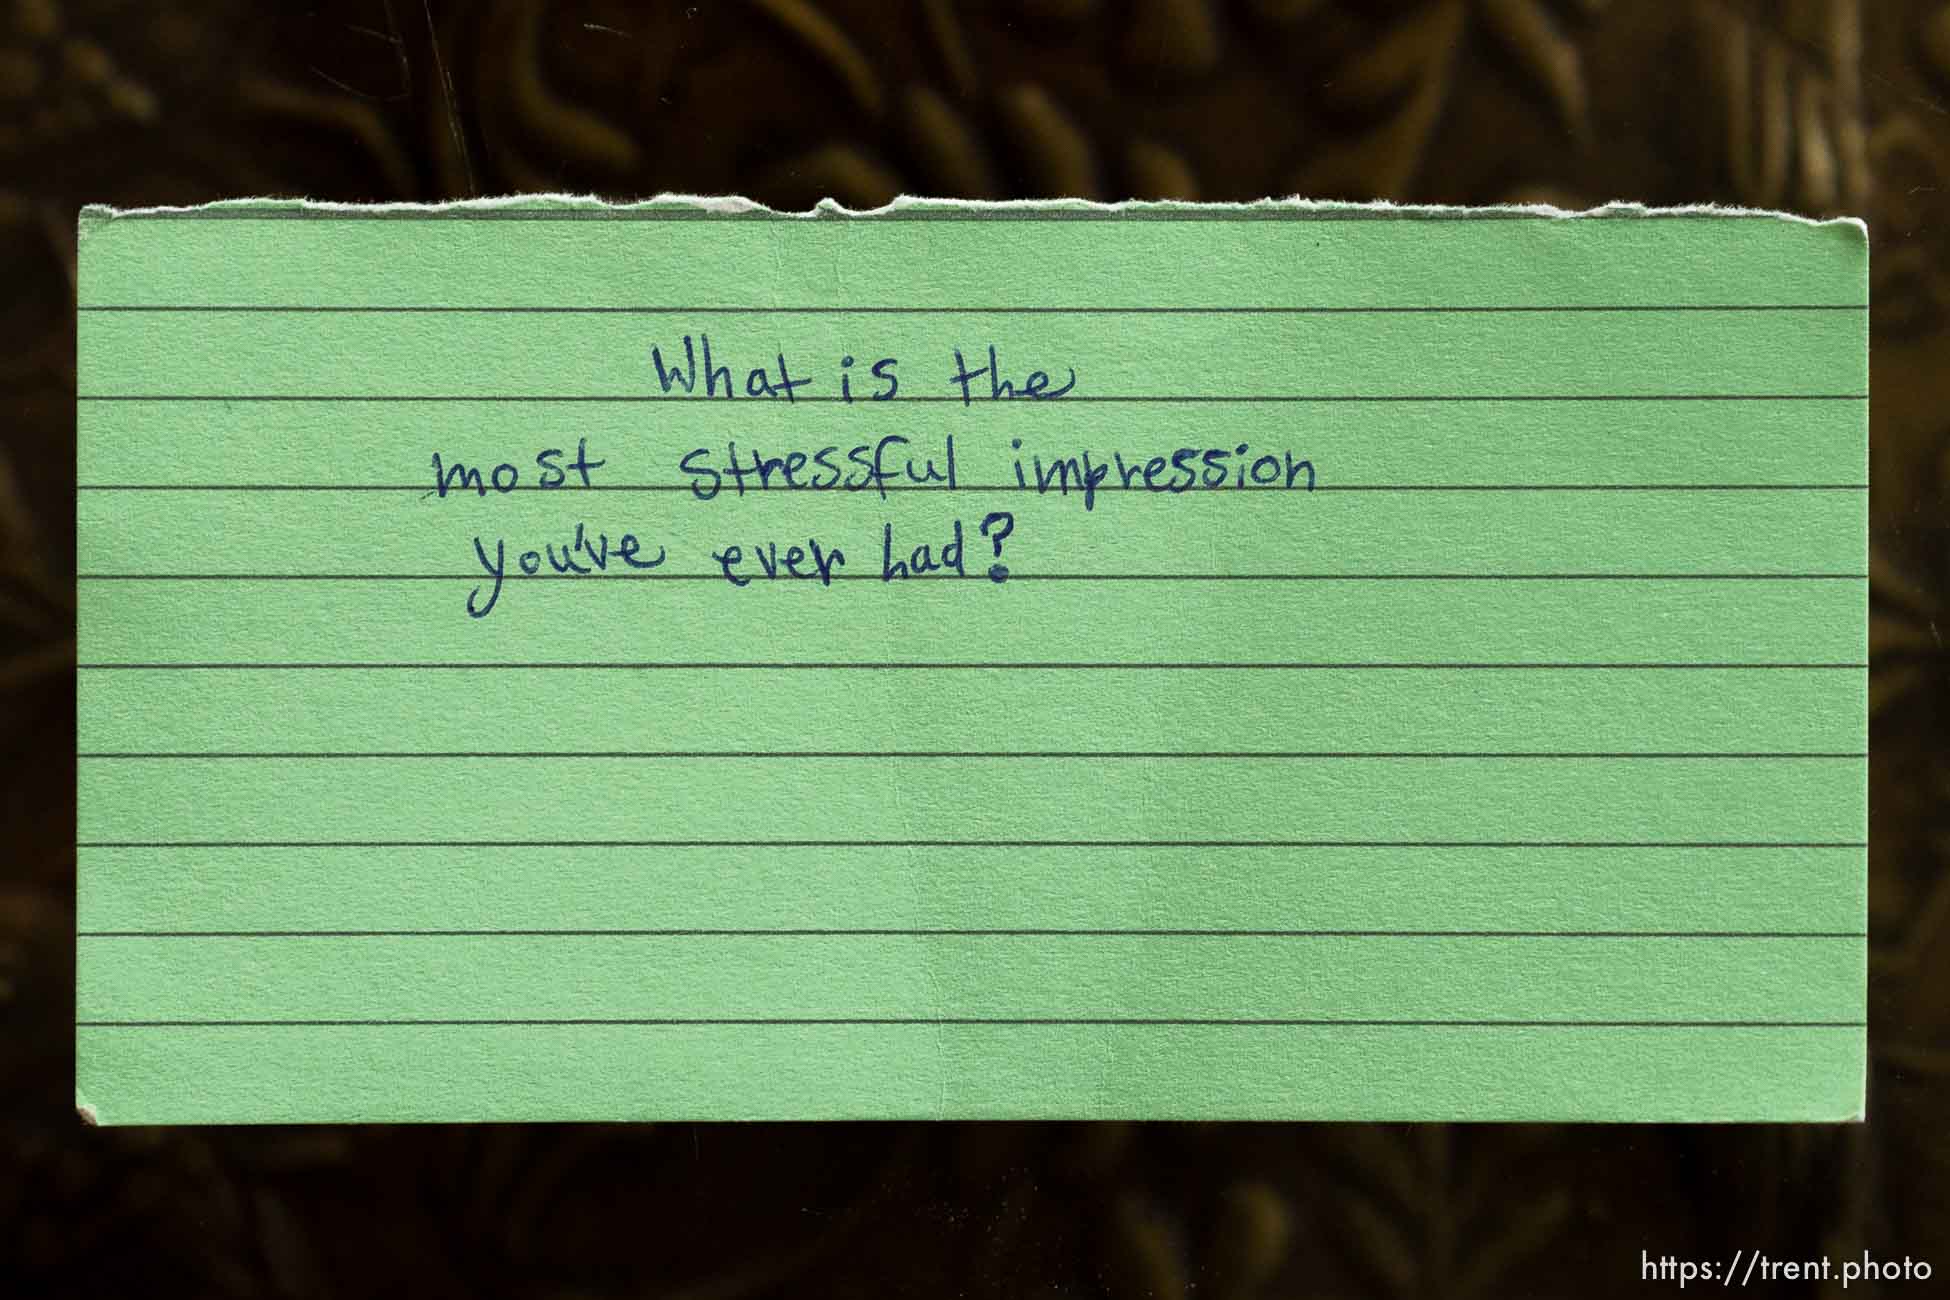 What is the
most stressful impression
you've ever had?
https://trent.photo